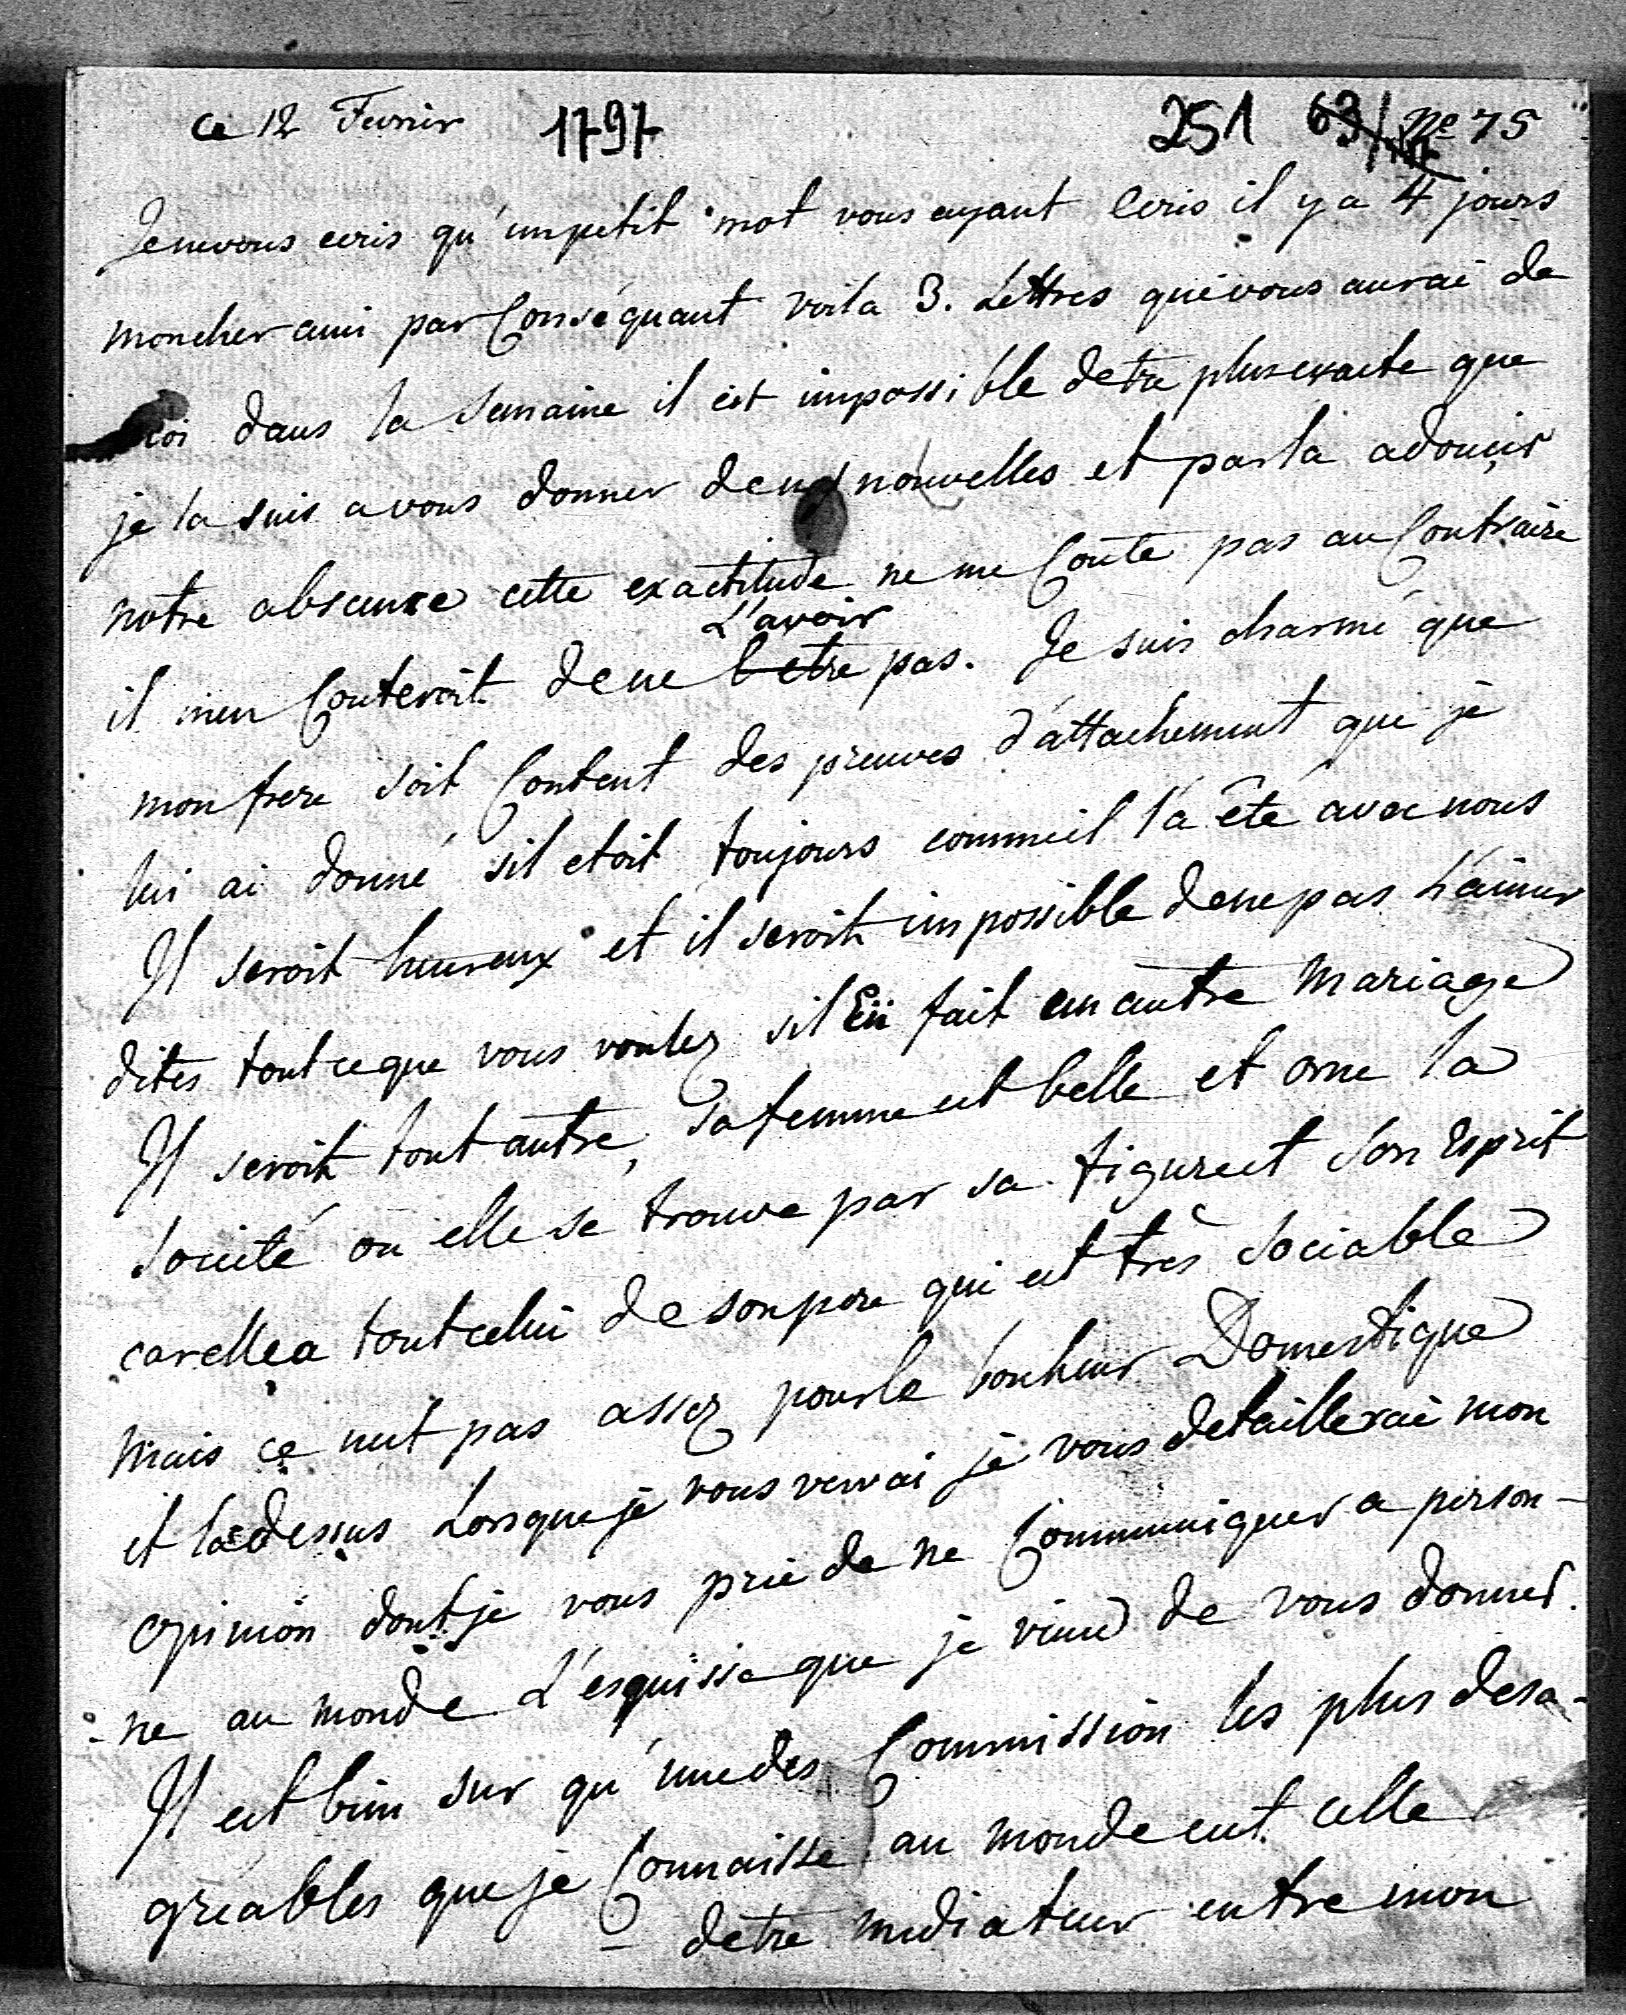 ce 12 Fevrier 1797 251 63/ No 75
Je ne vous ecris qu'un petit mot vous ayant Ecris il y a 4 jours
mon cher ami par Conséquant voila 3. Lettres que vous aurai de
moi dans la Semaine il est impossible detre plus exacte que
je la suis a vous donner de nos nouvelles et par la adouçir
notre absence cette exactitude ne me Coute pas au Contraire
il m'en Couteroit de ne l'etre L'avoir pas. Je suis charmé que
mon frere soit Content des preuves d'attachement que je
lui ai donné sil etoit toujours comme il l'a été avec nous
Il seroit heureux et il seroit impossible de ne pas L'aimer
dites tout ce que vous voulez sil Eü fait un autre Mariage
Il seroit tout autre, sa femme est belle et orne la
Societé ou elle se trouve par sa figure et son Esprit
car elle a tout celui de son pere qui est très Sociable
Mais ce n'est pas assez pour le bonheur Domestique
et la dessus Lorsque je vous verrai je vous detaillerai mon
opinion dont je vous prie de ne Communiquer a person-
-ne au monde L'esquisse que je viend de vous donner.
Il est bien sur qu'une des Commission les plus desa-
greables que je Connaisse au monde est celle
- d'etre mediateur entre mon